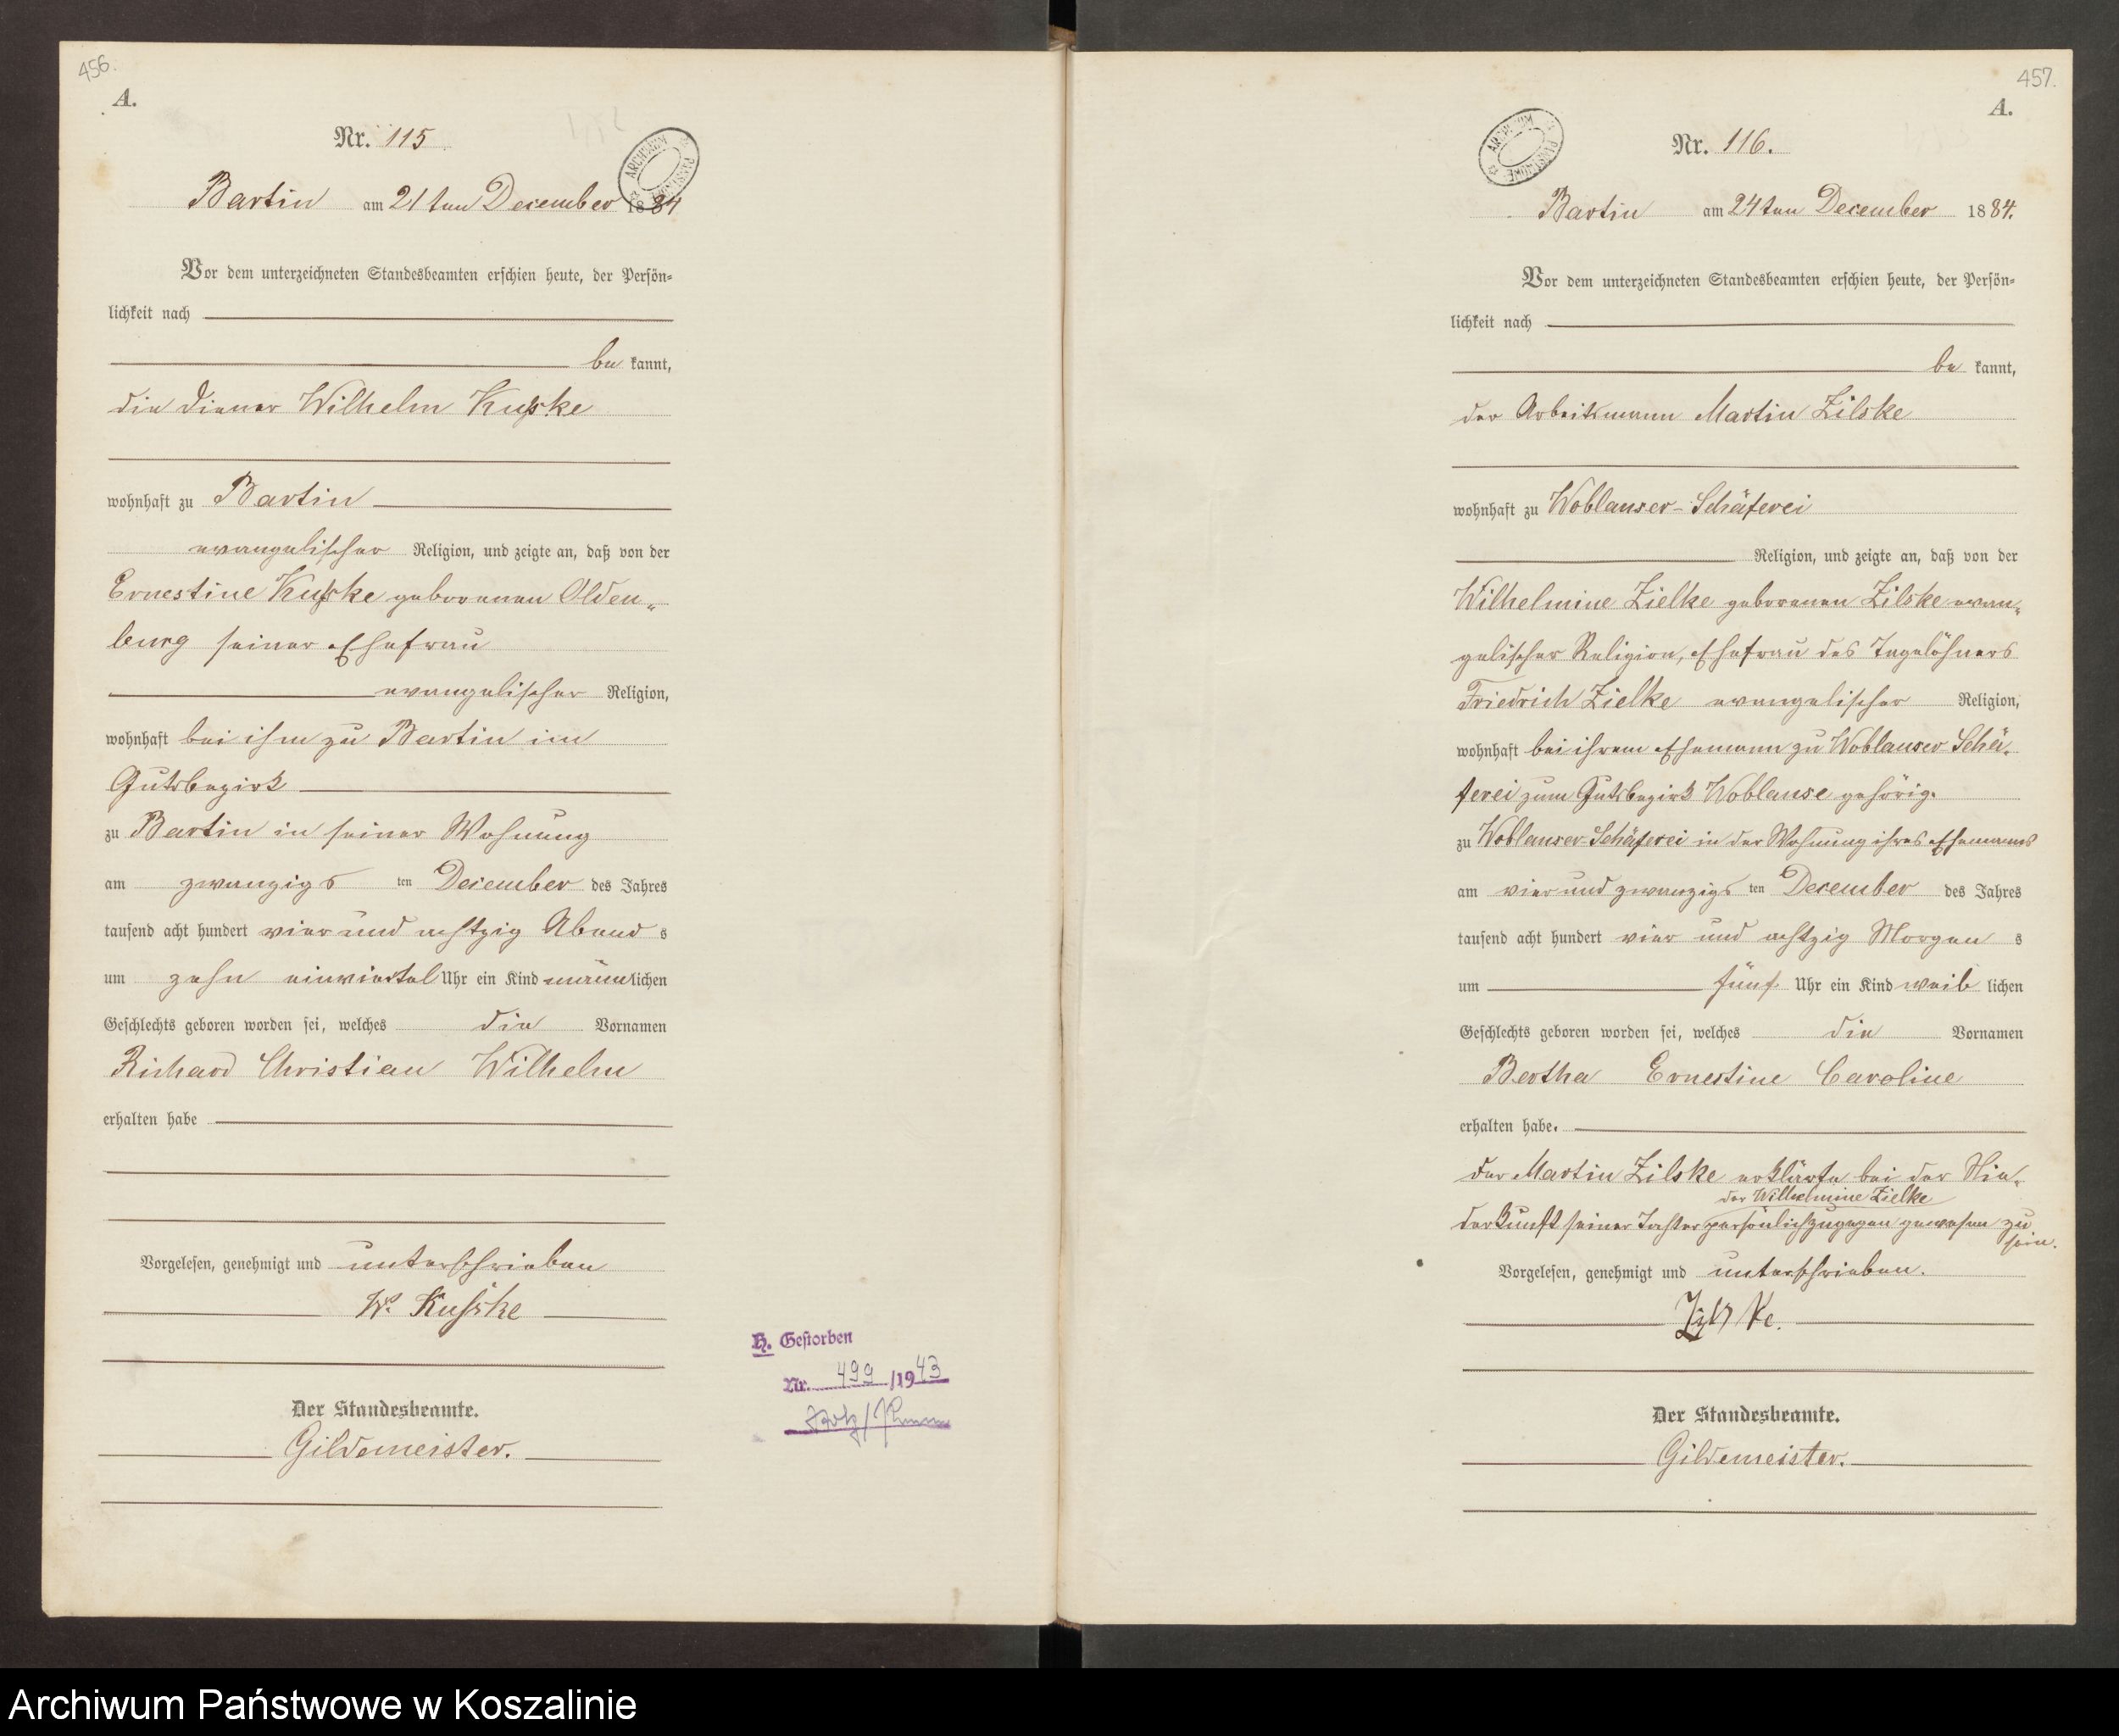 456.
A.
Nr. 115
ARCHIWUM PAŃSTWOWE
Bartin am 21ten December 1884
Vor dem unterzeichneten Standesbeamten erschien heute, der Persön-
lichkeit nach
be kannt,
die Diener Wilhelm Kuſske
wohnhaft zu Bartin
evangelischer Religion, und zeigte an, daß von der
Ernestine Kuſske geborenen Olden-
burg seiner Ehefrau
evangelischer Religion,
wohnhaft bei ihm zu Bartin im
Gutsbezirk
zu Bartin in seiner Wohnung
am zwanzigs ten December des Jahres
tausend acht hundert vier und achtzig Abend s
um zehn einviertel Uhr ein Kind männlichen
Geschlechts geboren worden sei, welches die Vornamen
Richard Christian Wilhelm
erhalten habe
Vorgelesen, genehmigt und unterschrieben
W. Kuſske
Der Standesbeamte.
Gildemeister.
H. Gestorben
Nr. 499 /1943
457.
A.
ARCHIWUM PAŃSTWOWE
Nr. 116.
Bartin am 24ten December 1884.
Vor dem unterzeichneten Standesbeamten erschien heute, der Persön-
lichkeit nach
be kannt,
der Arbeitsmann Martin Zilske
wohnhaft zu Woblanser-Schäferei
Religion, und zeigte an, daß von der
Wilhelmine Zielke geborenen Zilske evan-
gelischer Religion, Ehefrau des Tagelöhners
Friedrich Zielke evangelischer Religion,
wohnhaft bei ihrem Ehemann zu Woblanser Schä-
ferei zum Gutsbezirk Woblanse gehörig.
zu Woblanser-Schäferei in der Wohnung ihres Ehemanns
am vier und zwanzigs ten December des Jahres
tausend acht hundert vier und achtzig Morgen s
um fünf Uhr ein Kind weib lichen
Geschlechts geboren worden sei, welches die Vornamen
Bertha Ernestine Caroline
erhalten habe.
Der Martin Zilske erklärte bei der Nie-
der Wilhelmine Zielke
derkunft seiner Tochter persönlich zugegen gewesen zu
sein.
Vorgelesen, genehmigt und unterschrieben.
Zilske.
Der Standesbeamte.
Gildemeister.
Archiwum Państwowe w Koszalinie